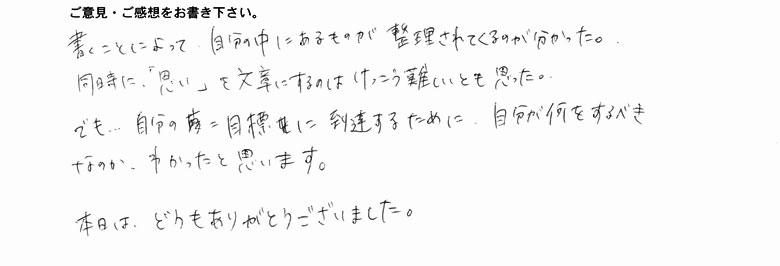 ご意見・ご感想をお書き下さい。
書くことによって、自分の中にあるものが整理されてくるのが分かった。
同時に、「思い」を文章にするのはけっこう難しいとも思った。
でも… 自分の夢=目標に到達するために、自分が何をするべき
なのか、わかったと思います。
本日は、どうもありがとうございました。